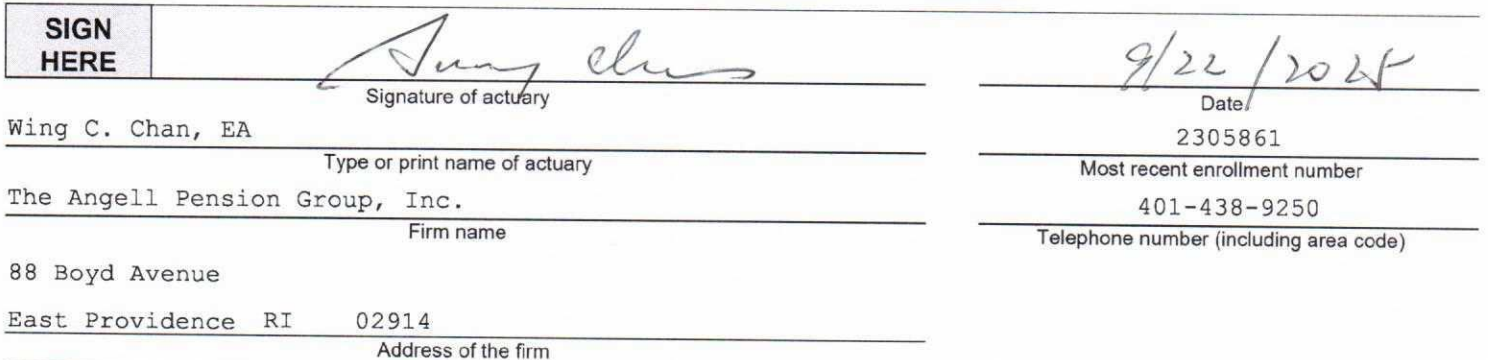 SIGN
HERE
9/22/2025
Signature of actuary
Date
Wing C. Chan, EA
2305861
Type or print name of actuary
Most recent enrollment number
The Angell Pension Group, Inc.
401-438-9250
Firm name
Telephone number (including area code)
88 Boyd Avenue
East Providence RI 02914
Address of the firm